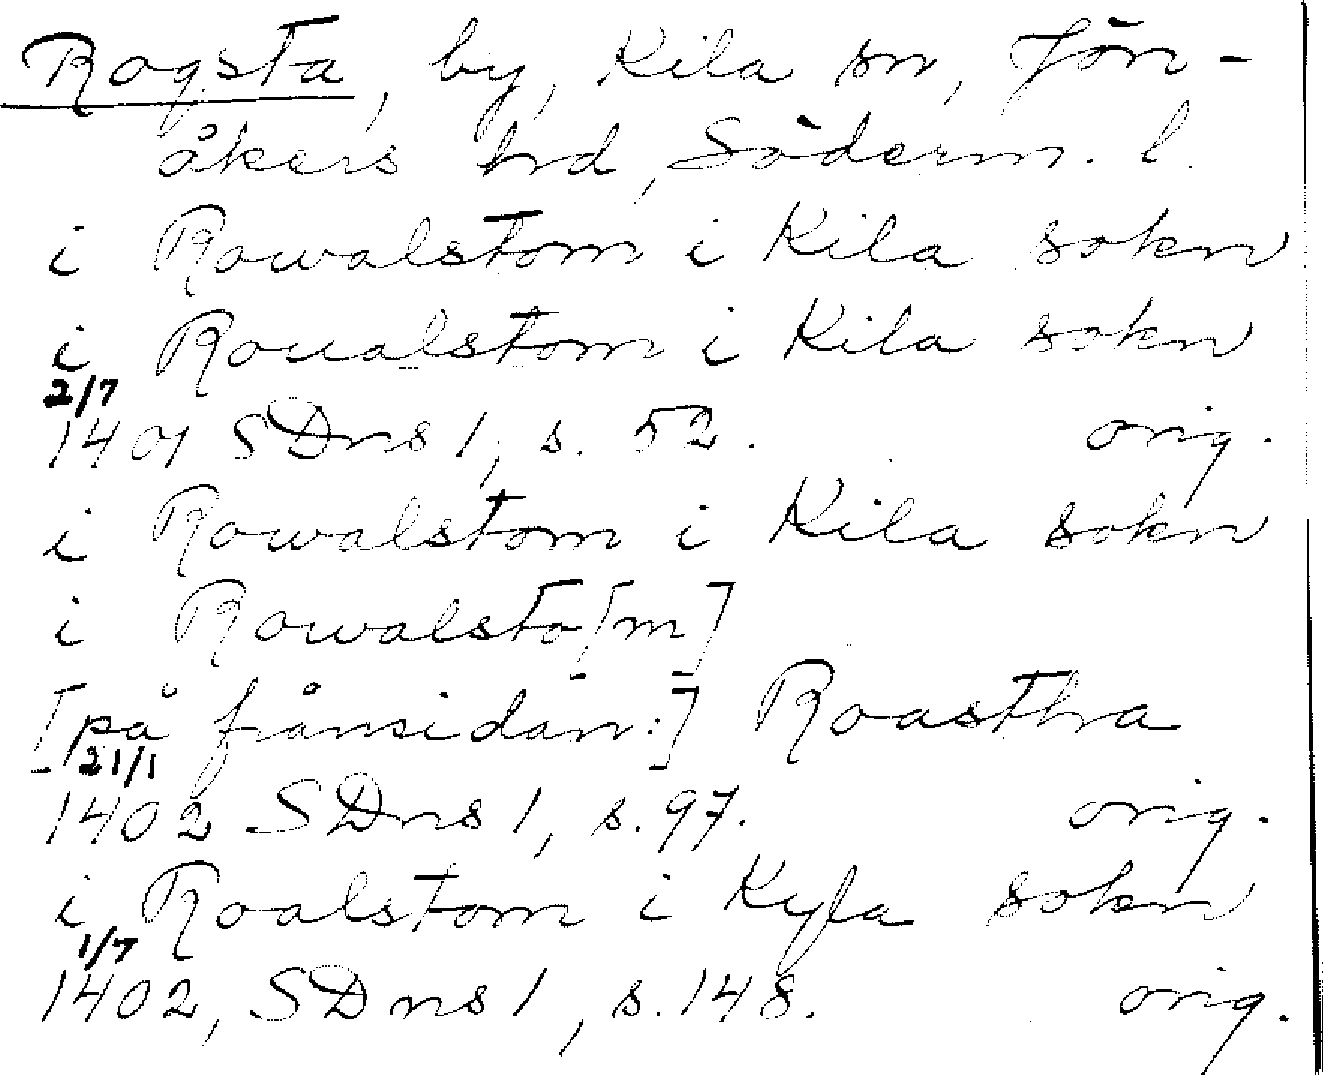 Rogsta, by, Kila sn, Jön-
åkers hd, Söderm. l.
i Rowalstom i Kila sokn
i Roualstom i Kila sokn
2/7
1401 SDns 1, s. 52. orig.
i Rowalstom i Kila sokn
i Rowalsto[m]
[på frånsidan:] Roastha
21/1
1402 SDns 1, s. 97. orig.
i Roalstom i Kyla sokn
1/7
1402, SDns 1, s. 148. orig.